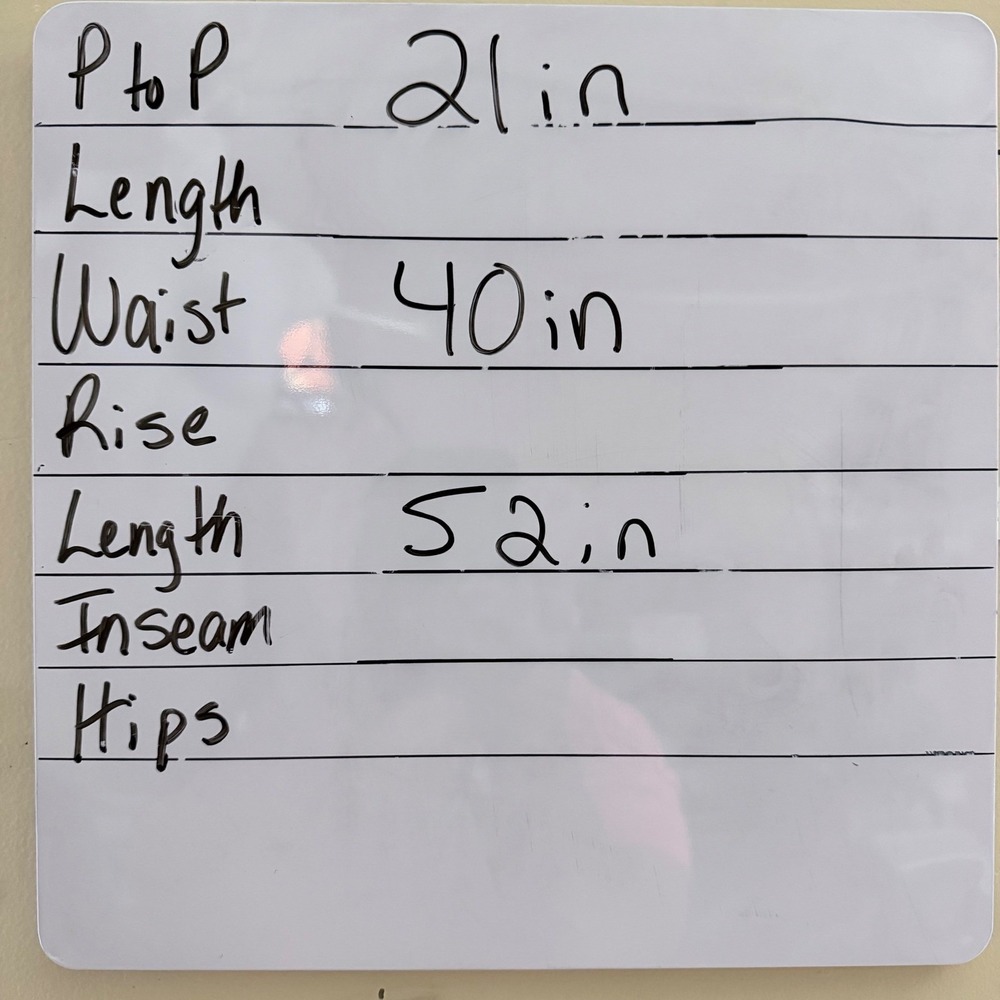 P to P 21in
Length
Waist 40in
Rise
Length 52in
Inseam
Hips